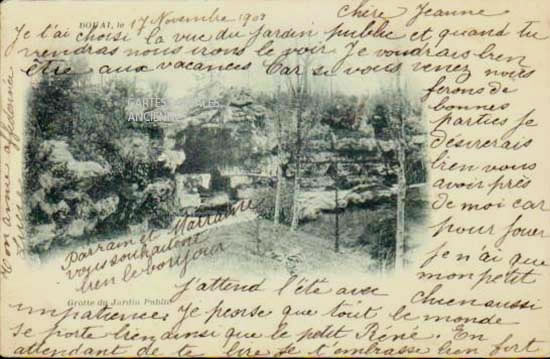 DOUAI, le 17 Novembre 190
Chère Jeanne
Je t'ai choisi la vue du Jardin public et quand tu
viendras nous irons le voir Je voudrais bien
être aux vacances Car si vous venez nous
ferons de
bonnes
parties je
désirerais
bien vous
avoir près
de moi car
pour jouer
je n'ai que
mon petit
chien aussi
j'attend l'été avec
impatience. Je pense que tout le monde
se porte bien ainsi que le petit Réné. En
attendant de te lire je t'embrasse bien fort
Ton amie affectionnée
Lucie
Parrain et Marraine
vous souhaitent
bien le bonjour
Grotte du Jardin Public
CARTES POSTALES
ANCIENNES